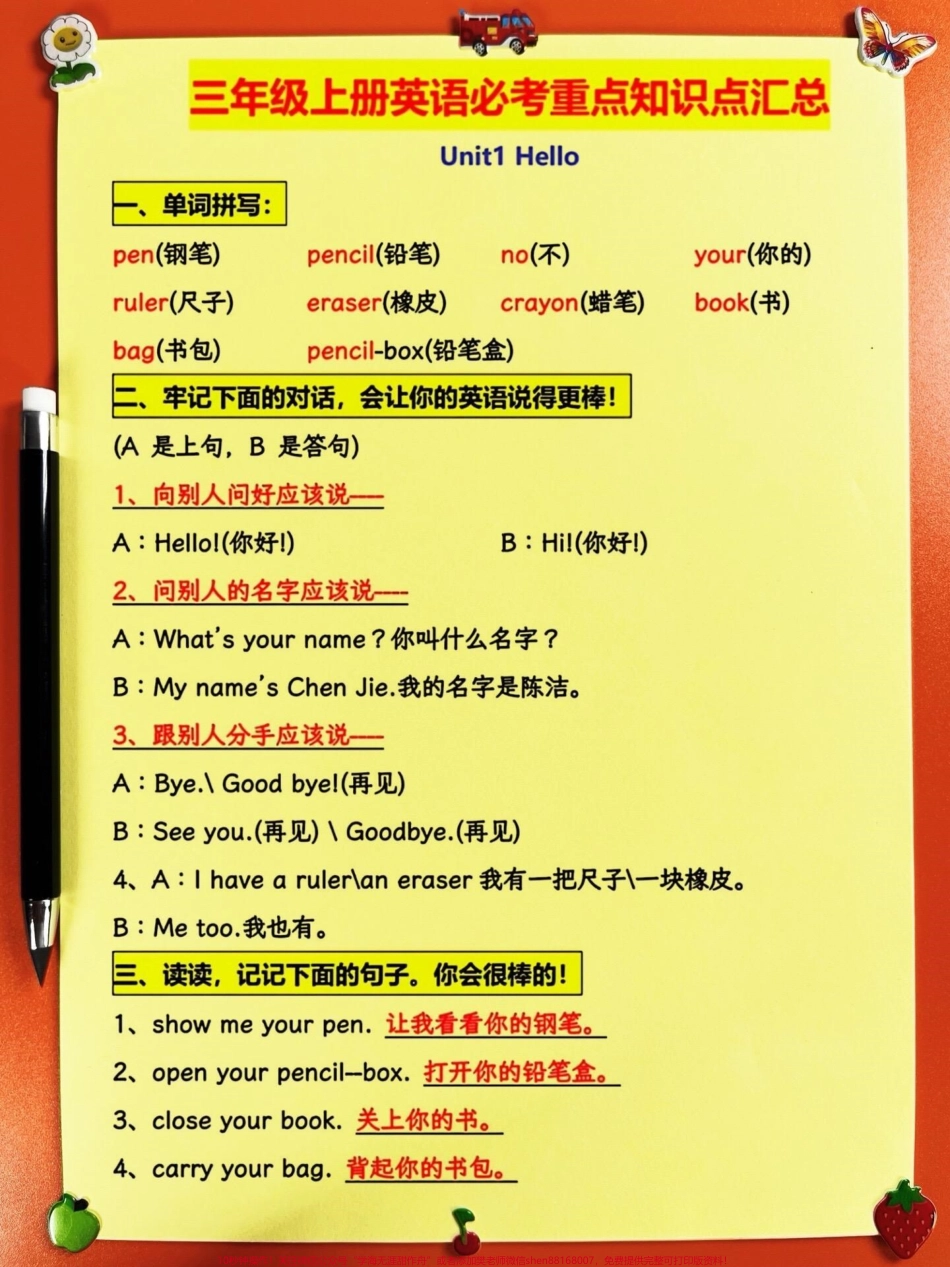 三年级上册英语必考重点知识点汇总
Unit1 Hello
一、单词拼写：
pen(钢笔) pencil(铅笔) no(不) your(你的)
ruler(尺子) eraser(橡皮) crayon(蜡笔) book(书)
bag(书包) pencil-box(铅笔盒)
二、牢记下面的对话，会让你的英语说得更棒！
(A 是上句，B 是答句)
1、向别人问好应该说----
A：Hello!(你好!) B：Hi!(你好!)
2、问别人的名字应该说----
A：What's your name？你叫什么名字？
B：My name's Chen Jie.我的名字是陈洁。
3、跟别人分手应该说----
A：Bye.\ Good bye!(再见)
B：See you.(再见) \ Goodbye.(再见)
4、A：I have a ruler\an eraser 我有一把尺子\一块橡皮。
B：Me too.我也有。
三、读读，记记下面的句子。你会很棒的！
1、show me your pen. 让我看看你的钢笔。
2、open your pencil--box. 打开你的铅笔盒。
3、close your book. 关上你的书。
4、carry your bag. 背起你的书包。
微信shen88168007，免费提供完整可打印版资料！